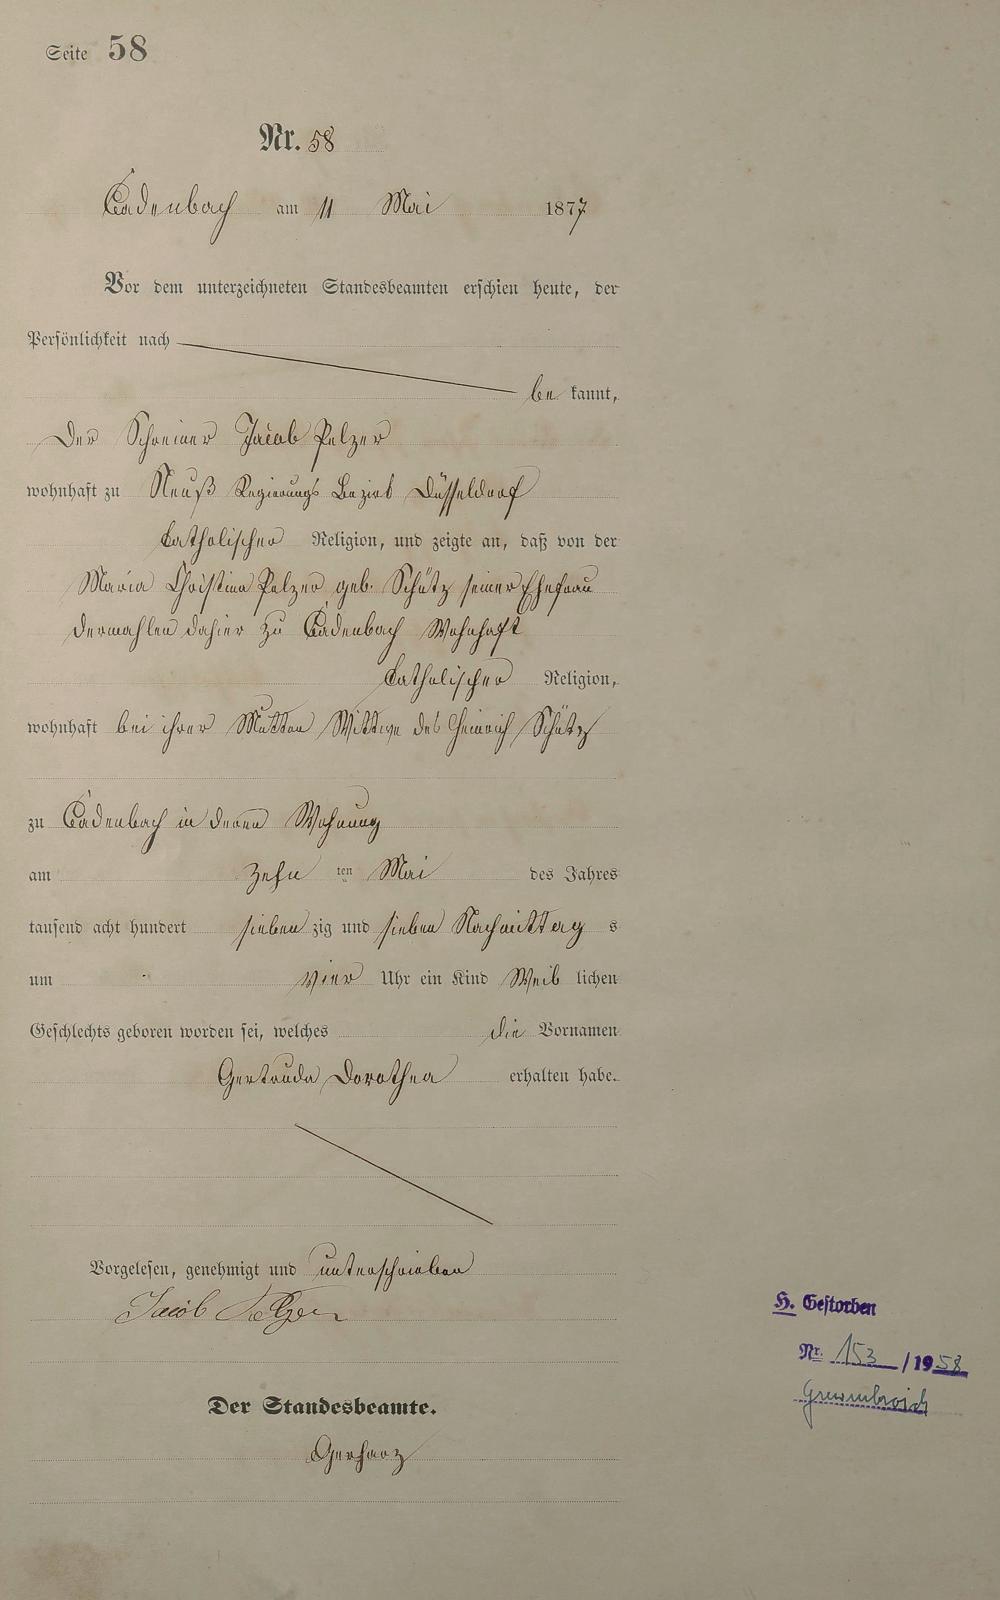 Seite 58
Nr. 58
Cadenbach am 11 Mai 1877
Vor dem unterzeichneten Standesbeamten erschien heute, der
Persönlichkeit nach
be kannt,
Der Schreiner Jacob Pelzer
wohnhaft zu Neuß Regierungs Bezirk Düsseldorf
katholischer Religion, und zeigte an, daß von der
Maria Christina Pelzer geb. Schütz seiner Ehefrau
dermahlen dahier zu Cadenbach Wohnhaft
katholischer Religion,
wohnhaft bei ihrer Mutter Wittwe des Heinrich Schütz
zu Cadenbach in deren Wohnung
am zehn ten Mai des Jahres
tausend acht hundert sieben zig und sieben Nachmittag s
um vier Uhr ein Kind Weib lichen
Geschlechts geboren worden sei, welches die Vornamen
Gertruda Dorothea erhalten habe.
Vorgelesen, genehmigt und unterschrieben
Jacob Pelzer
H. Gestorben
Nr. 153 / 1958
Grevenbroich
Der Standesbeamte.
Gerharz